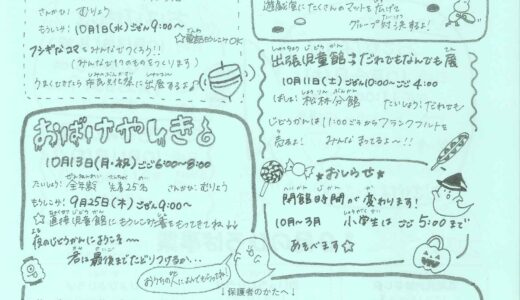 さんかひ：むりょう
もうしこみ：10月1日(水)ごぜん9:00～
☆電話もうしこみOK
フシギなコマをみんなでつくろう!!
(みんなで1つのものをつくります)
うまくできたら市民文化祭に出展するよ♪
遊戯室にたくさんのマットを広げて
グループ対決するよ！
出張児童館まだれでもなんでも展
10月11日(土)ごぜん10:00～ごご4:00
ばしょ：松林分館 たいしょう：だれでも
じどうかんは11:00ごろからフランクフルトを
売るよ！ みんなまってるよ～!!
おばけやしき
10月13日(月・祝)ごご6:00～8:00
たいしょう：全年齢 先着25名 さんかひ：むりょう
もうしこみ：9月25日(木)ごぜん9:00～
☆直接児童館にもうしこみ書をもってきてね
夜のじどうかんにようこそ…
君は最後までたどりつけるか…
おうちの人によんでもらってね
☆おしらせ☆
開館時間が変わります！
10月～3月 小学生はごご5:00まで
あそべます☆
↓保護者のかたへ↓